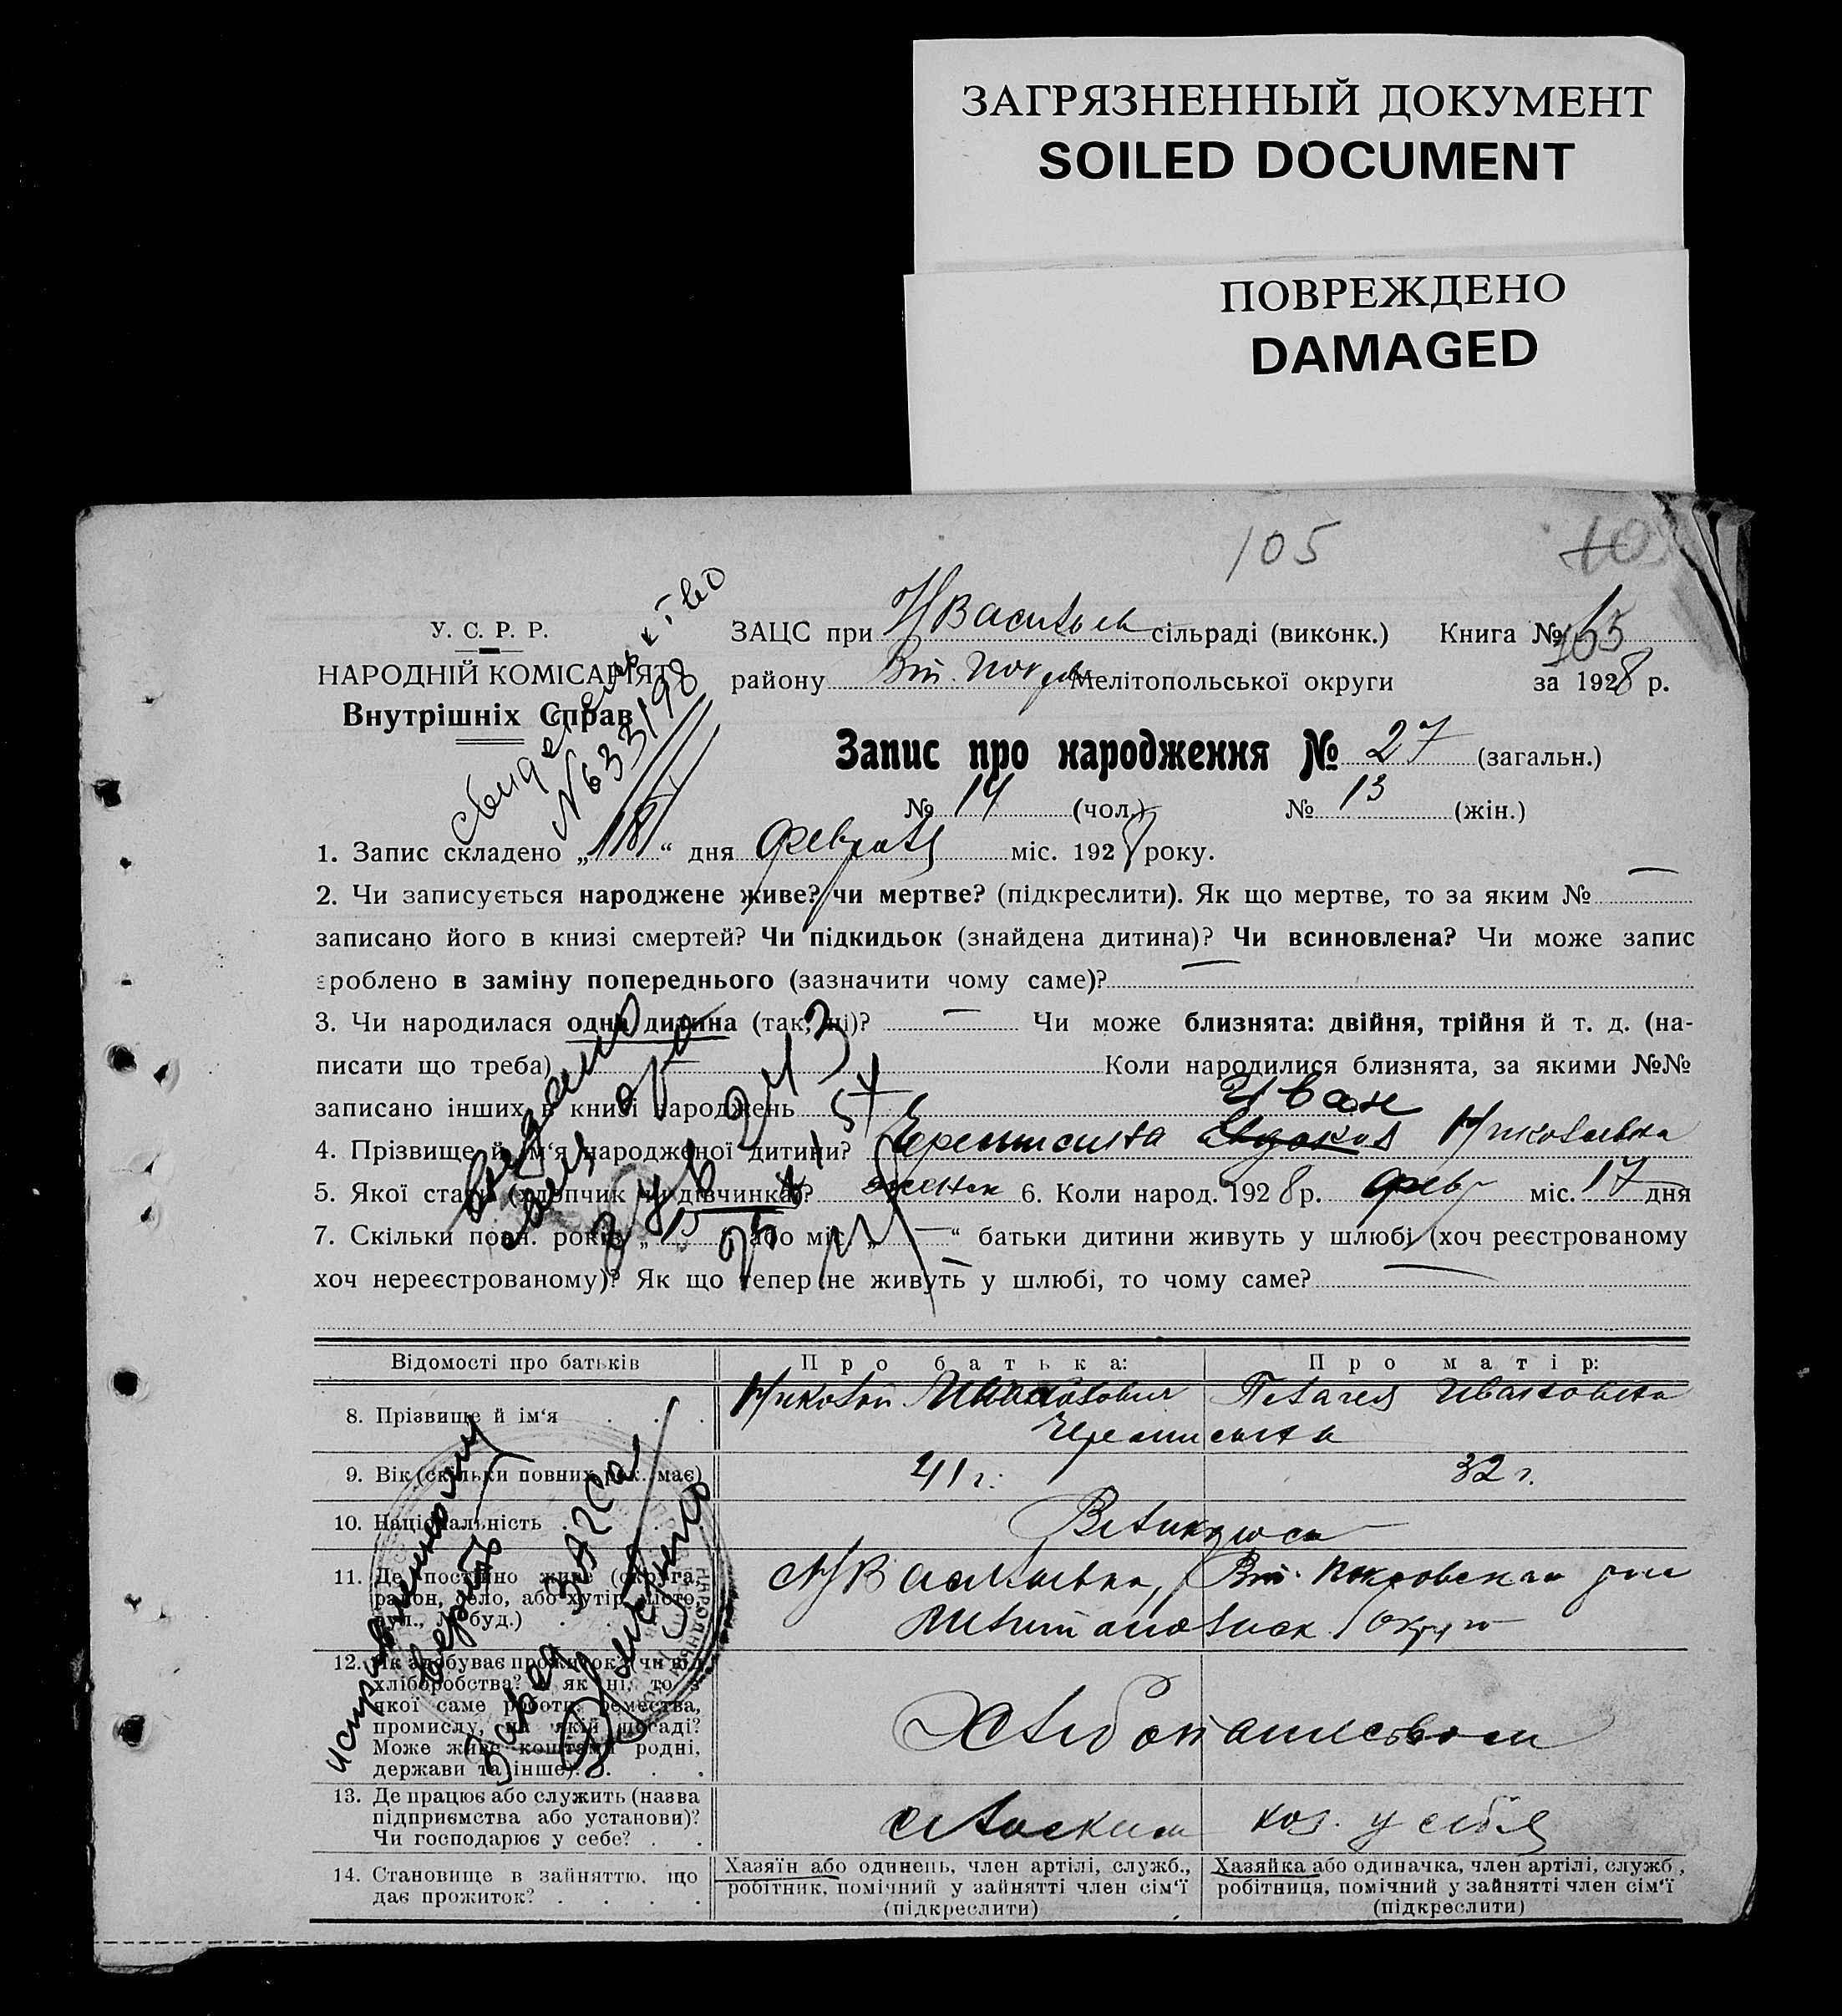 ЗАГРЯЗНЕННЫЙ ДОКУМЕНТ
SOILED DOCUMENT
ПОВРЕЖДЕНО
DAMAGED
105
У. С. Р. Р.
НАРОДНІЙ КОМІСАРІЯТ
Внутрішніх Справ
свидетельство
№ 633198
ЗАЦС при Н Васильев сільраді (виконк.) Книга №
району Вт. Покров Мелітопольської округи за 1928 р.
Запис про народження № 27 (загальн.)
№ 14 (чол.) № 13 (жін.)
1. Запис складено „18“ дня февраля міс. 1928 року.
2. Чи записується народжене живе? чи мертве? (підкреслити). Як що мертве, то за яким № —
записано його в книзі смертей? Чи підкидьок (знайдена дитина)? Чи всиновлена? Чи може запис
зроблено в заміну попереднього (зазначити чому саме)? —
3. Чи народилася одна дитина (так, ні)? — Чи може близнята: двійня, трійня й т. д. (на-
писати що треба) Коли народилися близнята, за якими №№
записано інших в книзі народжень
Иван
4. Прізвище й ім‘я народженої дитини? Николаевна
5. Якої статі (хлопчик чи дівчинка)? женск 6. Коли народ. 1928 р. февр міс. 17 дня
7. Скільки повн. років „15“ або міс. „—“ батьки дитини живуть у шлюбі (хоч реєстрованому
хоч нереєстрованому)? Як що тепер не живуть у шлюбі, то чому саме? —
выдано
Відомості про батьків Про батька: Про матір:
8. Прізвище й ім‘я . . . Николай Пелагея Ивановна
9. Вік (скільки повних рок. має) 41 г. 32 г.
10. Національність . . . Великоросы
11. Де постійно живе (округа, район, село, або хутір, місто, вул., № буд.) Н Васильевка, Вт. Покровского рай
Мелитопольск округ
12. Як здобуває прожиток? (чи від
хліборобства? А як ні, то з
якої саме роботи, ремества,
промислу, на якій посаді?
Може живе коштами родні,
держави та інше). . . .
Хлебопашеством
13. Де працює або служить (назва
підприємства або установи)?
Чи господарює у себе? . .
сельским хоз. у себя
14. Становище в зайняттю, що
дає прожиток? . . . .
Хазяїн або одинець, член артілі, служб.,
робітник, помічний у зайнятті член сім‘ї
(підкреслити)
Хазяйка або одиначка, член артілі, служб.,
робітниця, помічний у зайнятті член сім‘ї
(підкреслити)
исправленному
верить
Завед ЗАГСа